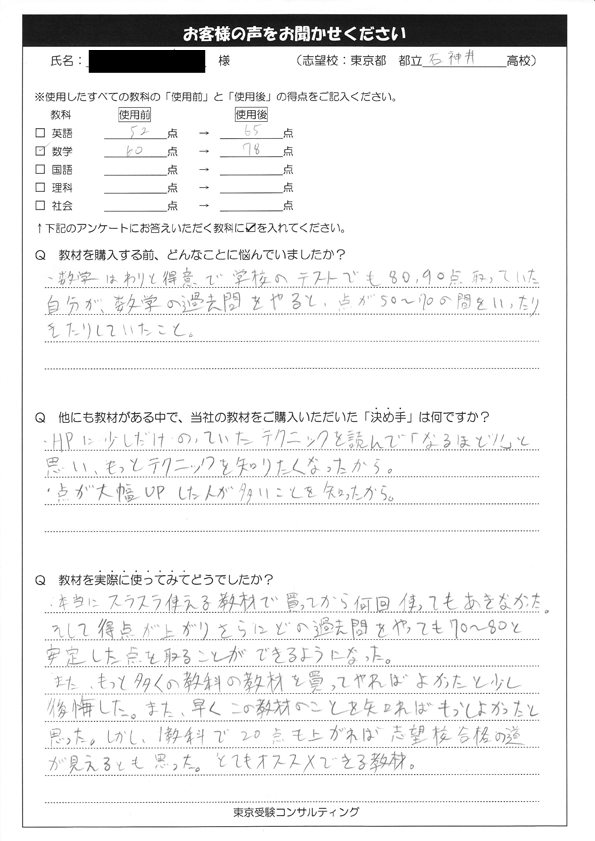 お客様の声をお聞かせください
氏名： 様 （志望校：東京都 都立 石神井 高校）
※使用したすべての教科の「使用前」と「使用後」の得点をご記入ください。
教科 使用前 使用後
□ 英語 52 点 → 65 点
☑ 数学 60 点 → 78 点
□ 国語 点 → 点
□ 理科 点 → 点
□ 社会 点 → 点
↑下記のアンケートにお答えいただく教科に☑を入れてください。
Q 教材を購入する前、どんなことに悩んでいましたか？
・数学はわりと得意で学校のテストでも80,90点取っていた
自分が、数学の過去問をやると、点が50〜70の間をいったり
きたりしていたこと。
Q 他にも教材がある中で、当社の教材をご購入いただいた「決め手」は何ですか？
・HPに少しだけのっていたテクニックを読んで「なるほど!!」と
思い、もっとテクニックを知りたくなったから。
・点が大幅UPした人が多いことを知ったから。
Q 教材を実際に使ってみてどうでしたか？
・本当にスラスラ使える教材で買ってから何回使ってもあきなかった。
そして得点が上がりさらにどの過去問をやっても70〜80と
安定した点を取ることができるようになった。
また、もっと多くの教科の教材を買ってやればよかったと少し
後悔した。また、早くこの教材のことを知ればもっとよかったと
思った。しかし、1教科で20点も上がれば志望校合格の道
が見えるとも思った。とてもオススメできる教材。
東京受験コンサルティング